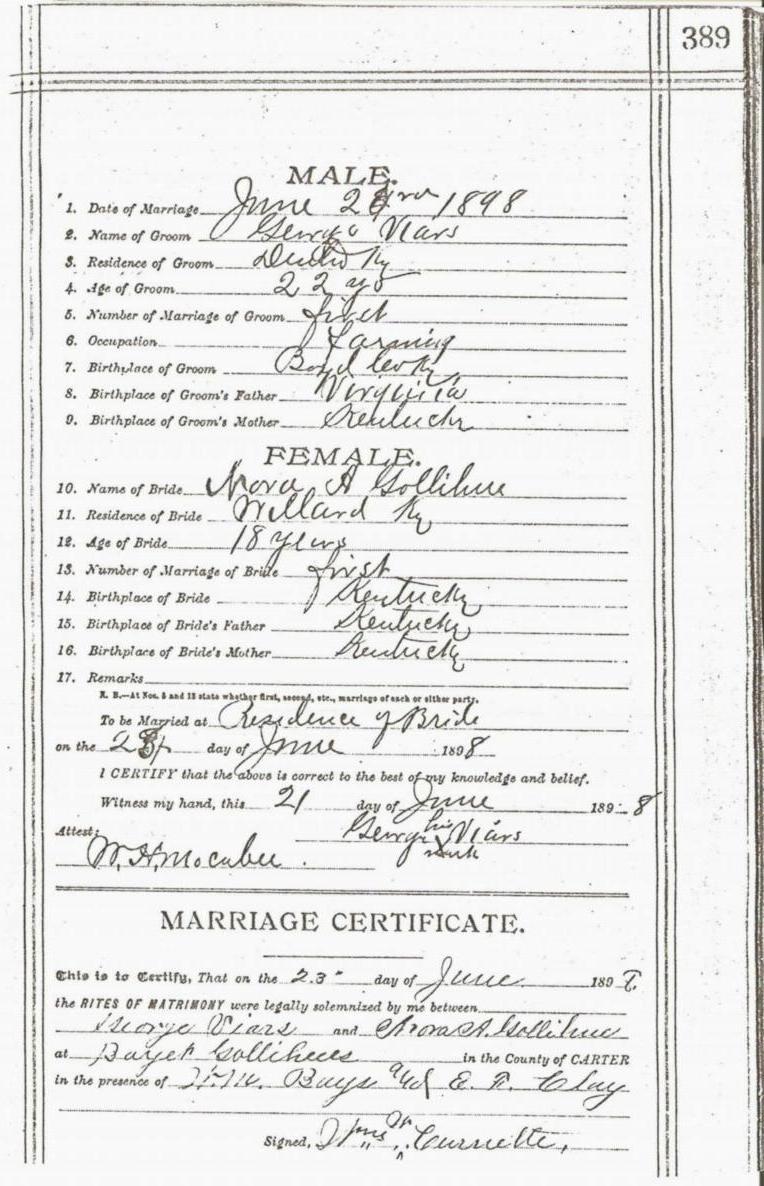 389
MALE.
1. Date of Marriage June 23rd 1898
2. Name of Groom George Viars
3. Residence of Groom Ky
4. Age of Groom 22 yrs
5. Number of Marriage of Groom first
6. Occupation Farming
7. Birthplace of Groom Boyd Co Ky,
8. Birthplace of Groom's Father Virginia
9. Birthplace of Groom's Mother Kentucky
FEMALE.
10. Name of Bride Nora A Gollihue
11. Residence of Bride Willard Ky
12. Age of Bride 18 years
13. Number of Marriage of Bride first
14. Birthplace of Bride Kentucky
15. Birthplace of Bride's Father Kentucky
16. Birthplace of Bride's Mother Kentucky
17. Remarks
N. B.—At Nos. 5 and 13 state whether first, second, etc., marriage of each or either party.
To be Married at Residence of Bride
on the day of June 1898
I CERTIFY that the above is correct to the best of my knowledge and belief.
Witness my hand, this 21 day of June 189 8
George his Viars
Attest: mark
W. H. McCabee.
MARRIAGE CERTIFICATE.
This is to Certify, That on the 23" day of June 189
the RITES OF MATRIMONY were legally solemnized by me between
George Viars and Nora A. Gollihue
at Gollihues in the County of CARTER
in the presence of Bays and E. F. Clay
Signed,